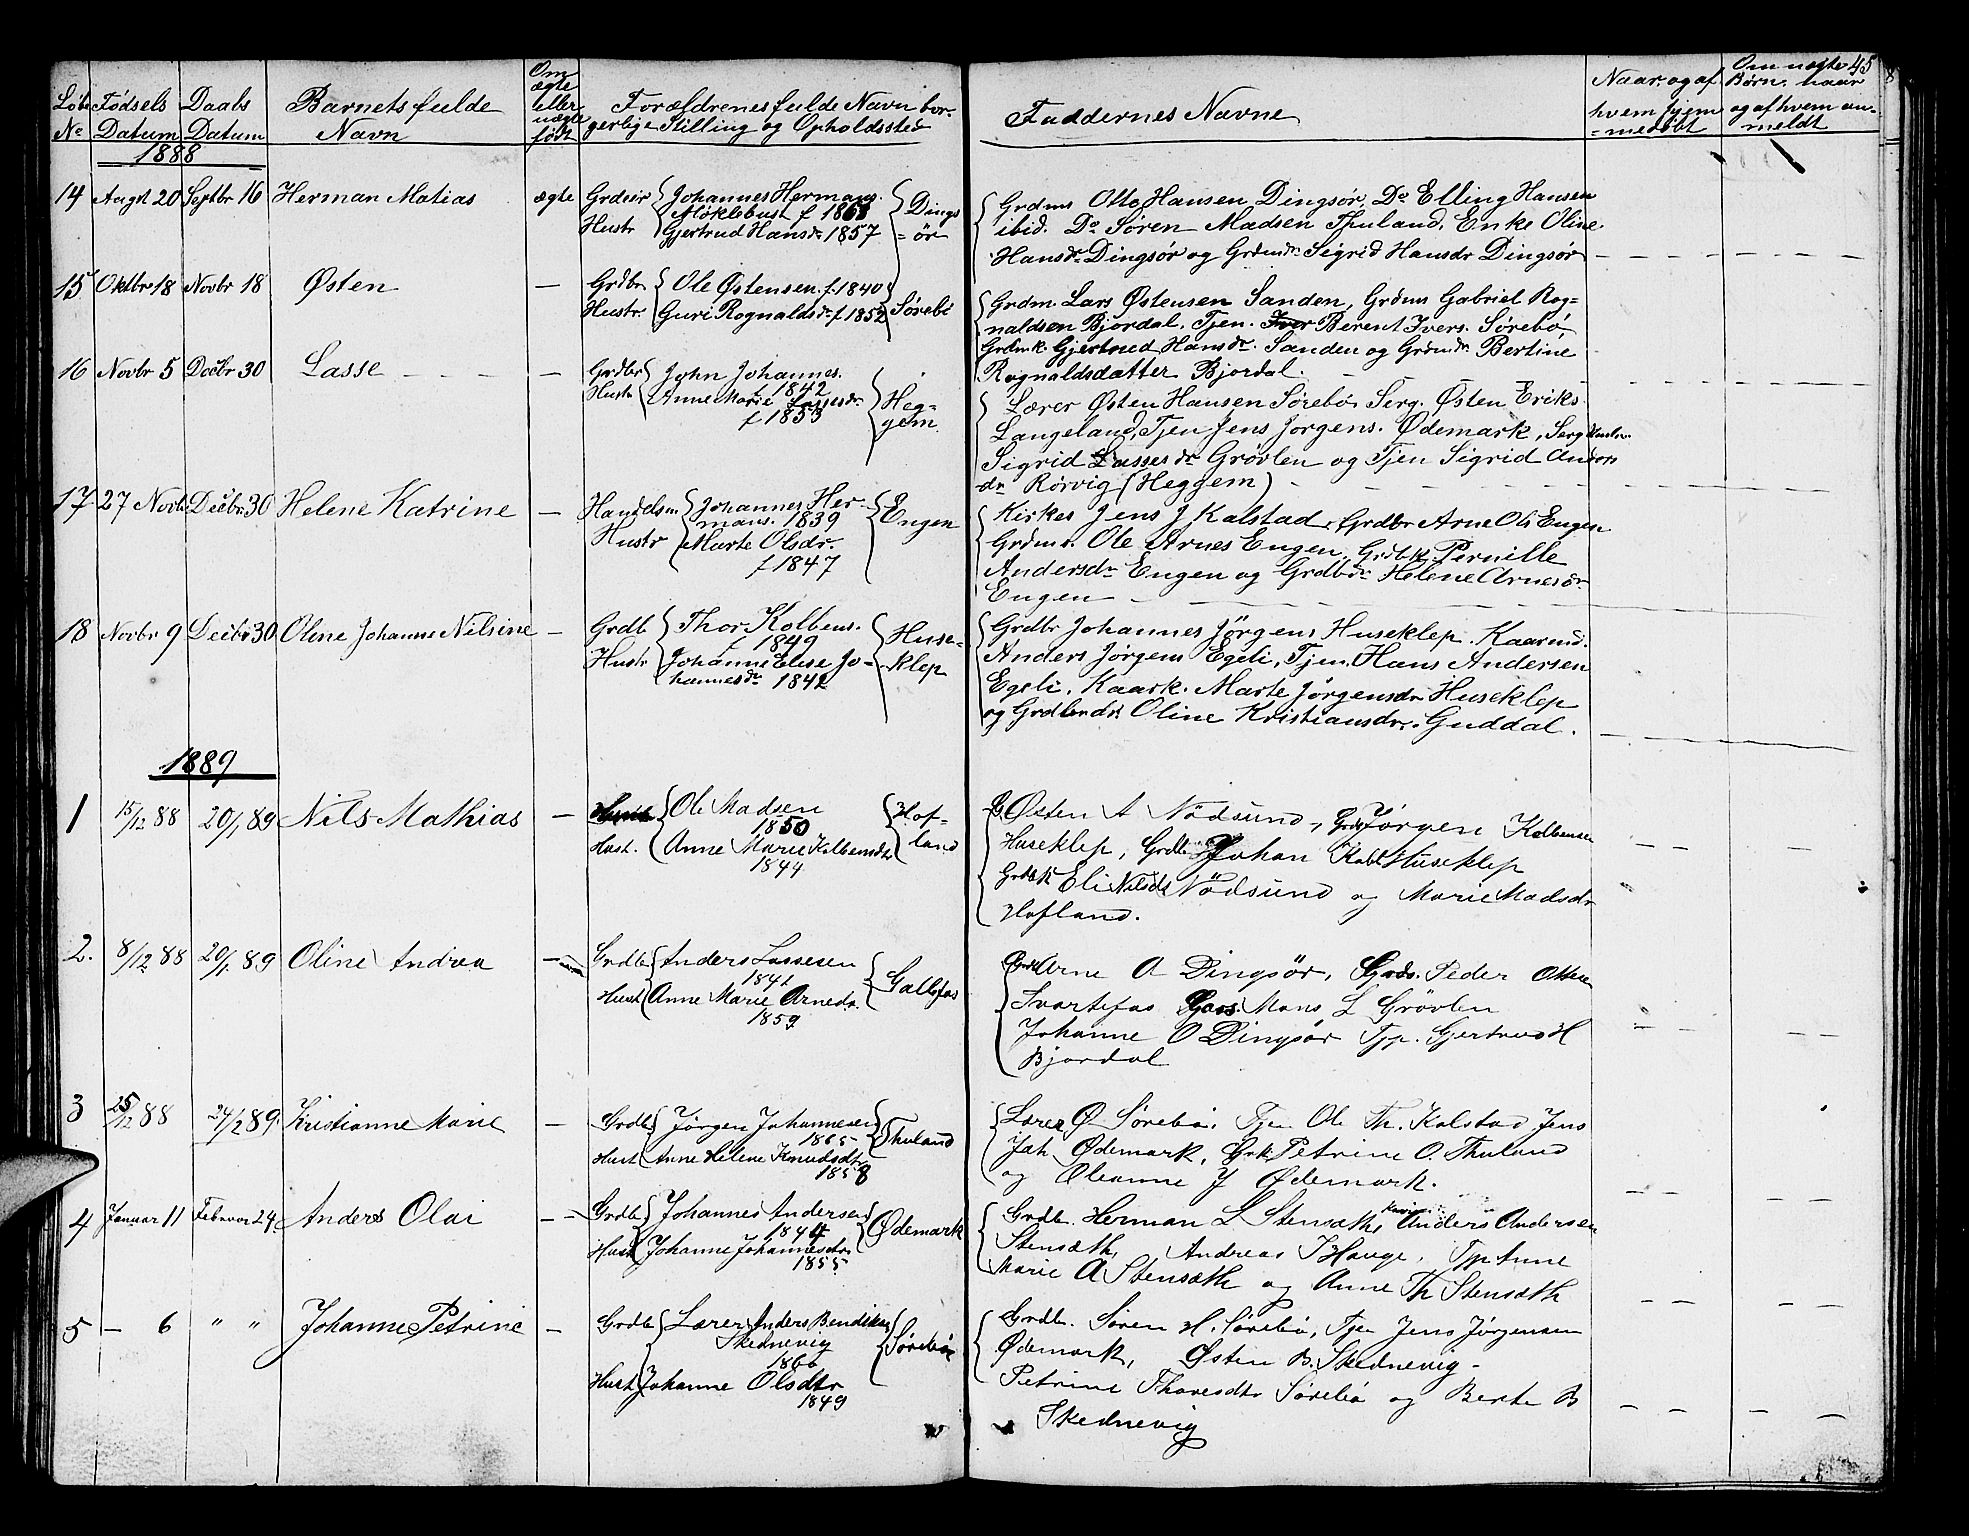 45
Løbe Fødsels Daabs Barnets fulde Om ægte eller uægte født Forældrenes fulde Navn bor- Faddernes Navne Naar og af Om uægte Børn. naar
No Datum Datum Navn gerlige Stilling og Opholdssted hvem hjem- og af hvem an-
=medøbt =meldt
1888
14 Augst 20 Septbr 16 Herman Matias ægte Grdeier Johannes Hermans. Dings
Møklebust f 1868 = ør
Hustr Gjertrud Hansdr 1857
Grdms Otto Hansen Dingsør, Do Elling Hansen
ibid. Do Søren Madsen Thuland, Enke Oline
Hansdr Dingsør og Grdmdr Sigrid Hansdr Dingsør
15 Oktbr 18 Novbr 18 Østen — Grdbr Ole Østensen f. 1840 Sørebø
Hustr. Guri Rognaldsdr f 1852
Grdm. Lars Østensen Sanden, Grdms Gabriel Rog=
naldsen Bjordal, Tjen. Iver Berent Ivers. Sørebø
Grdmk. Gjertrud Hansdr. Sanden og Grdmdr. Bertine
Rognaldsdatter Bjordal.
16 Novbr 5 Decbr 30 Lasse — Grdbr John Johannes. Heg=
f 1842 gem
Hustr Anne Marie Lassesdr
f 1853
Lærer Østen Hansen Sørebø Serg. Østen Eriks
Langeland, Tjen Jens Jørgens. Ødemark, Serg Hustr.
Sigrid Lassesdr Grøvlen og Tjen Sigrid Anders
dr Rørvig (Heggem)
17 27 Novbr Decbr 30 Helene Katrine — Handelsm Johannes Her- Engen
mans. 1839
Hustr Marte Olsdr.
f 1847
Kirkes Jens J Kalstad, Grdbr Arne Ols Engen
Grdms. Ole Arnes Engen, Grdbk Pernille
Andersdr Engen og Grdbdr Helene Arnesdr
Engen
18 Novbr 9 Decbr 30 Oline Johanne Nilsine — Grdb Thor Kolbens. Huse-
f 1849 klep
Hustr Johanne Elise Jo-
hannesdr 1842
Grdbr Johannes Jørgens Huseklep. Kaarmd.
Anders Jørgens Egeli, Tjen. Hans Andersen
Egeli. Kaark. Marte Jørgensdr Huseklep
og Grdbrdr. Oline Kristiansdr. Guddal.
1889
1 15/12 88 20/1 89 Nils Mathias — Ole Madsen Hof=
1850 land
Hust. Anne Marie Kolbensdtr
1844
Østen A Nödsund, Grds Jørgen Kolbensen
Huseklep, Grdb Johan Kolb Huseklep
Grdbk Eli Nilsdt Nödsund og Marie Madsdtr
Hofland.
2. 8/12 88 20/1 89 Oline Andrea — Grdb Anders Lassesen Gallefos
1841
Hust Anne Marie Arnedtr.
1859
Grds Arne A Dingsør, Grds. Peder Ottesen
Svartefos Grds. Mons L Grövlen
Johanne O Dingsør Tjp. Gjertrud H
Bjordal
3 25/12 88 24/2 89 Kristianne Marie — Grdb Jørgen Johannesen Thuland
1865
Hust Anne Helene Knudsdtr
1858
Lærer Ø Sørebø, Tjen Ole Th. Kalstad Jens
Joh Ødemark, Grk Petrine O. Thuland
og Oleanne J Ødemark.
4 Januar 11 Februar 24 Anders Olai — Grdb Johannes Andersen Ødemark
1844
Hust Johanne Johannesdtr
1855
Grdb. Herman L Stensæth, Anders Andersen
Stensæth, Andreas T Hauge, Tjp Anne
Marie A Stensæth og Anne Th Stensæth
5 — 6 " " Johanne Petrine — Grdb Lærer Anders Bendiksen Sørebø
Skednevig
1866
Hust Johanne Olsdtr
1849
Grdb. Søren H. Sørebø, Tjen Jens Jørgensen
Ødemark, Østen B. Skednevig -
Petrine Thoresdtr Sørebø og Berte B
Skednevig